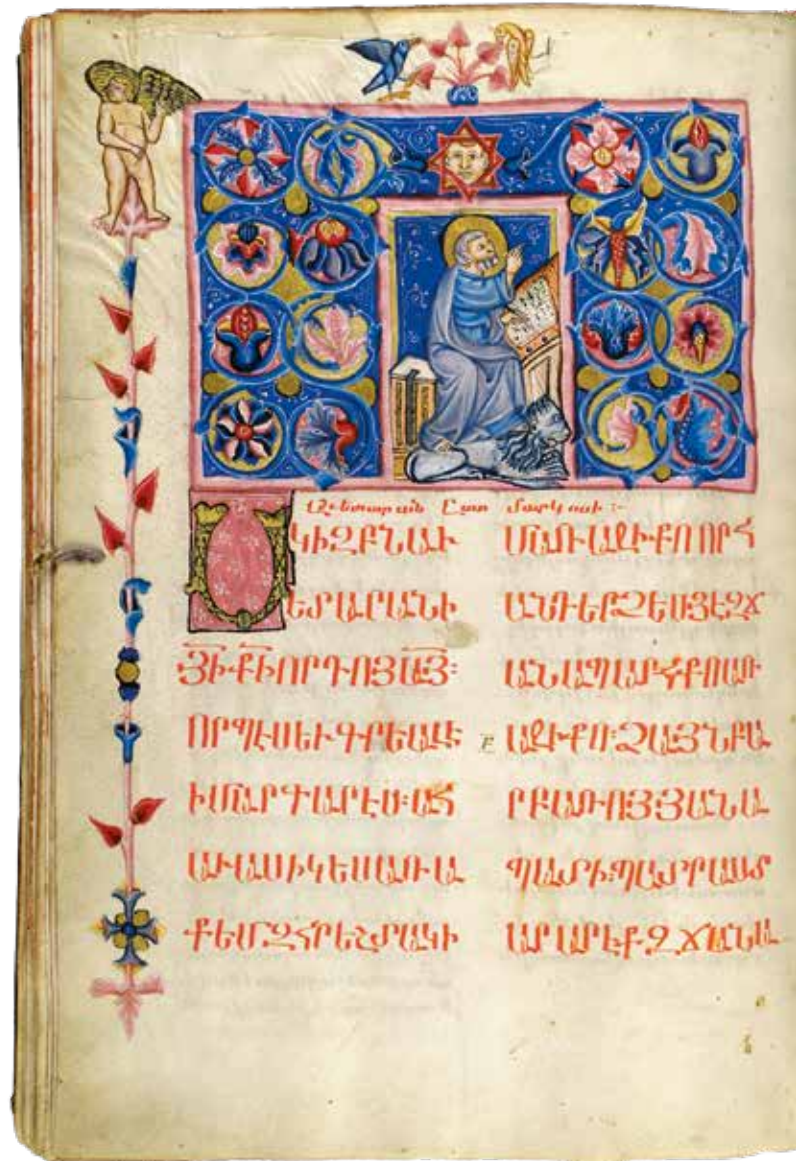 Աւետարան Ըստ Մարկոսի :-
ՍԿԻԶԲՆ ԱՒ
ԵՏԱՐԱՆԻ
ՅԻ ՔԻ ՈՐԴՈՅ ԱՅ:
ՈՐՊԷՍ ԵՒ ԳՐԵԱԼ Է
Ի ՄԱՐԳԱՐԷՍ: ԱՀ
ԱՒԱՍԻԿ ԵՍ ԱՌԱ
ՔԵՄ ԶՀՐԵՇՏԱԿ Ի
Մ ԱՌԱՋԻ ՔՈ ՈՐ Հ
ԱՆԴԵՐՁԵՍՑԷ ԶՃ
ԱՆԱՊԱՐՀ ՔՈ ԱՌ
ԱՋԻ ՔՈ: ՁԱՅՆ ԲԱ
ՐԲԱՌՈՅ ՅԱՆԱ
ՊԱՏԻ. ՊԱՏՐԱՍՏ
ԱՐԱՐԷՔ ԶՃԱՆԱ